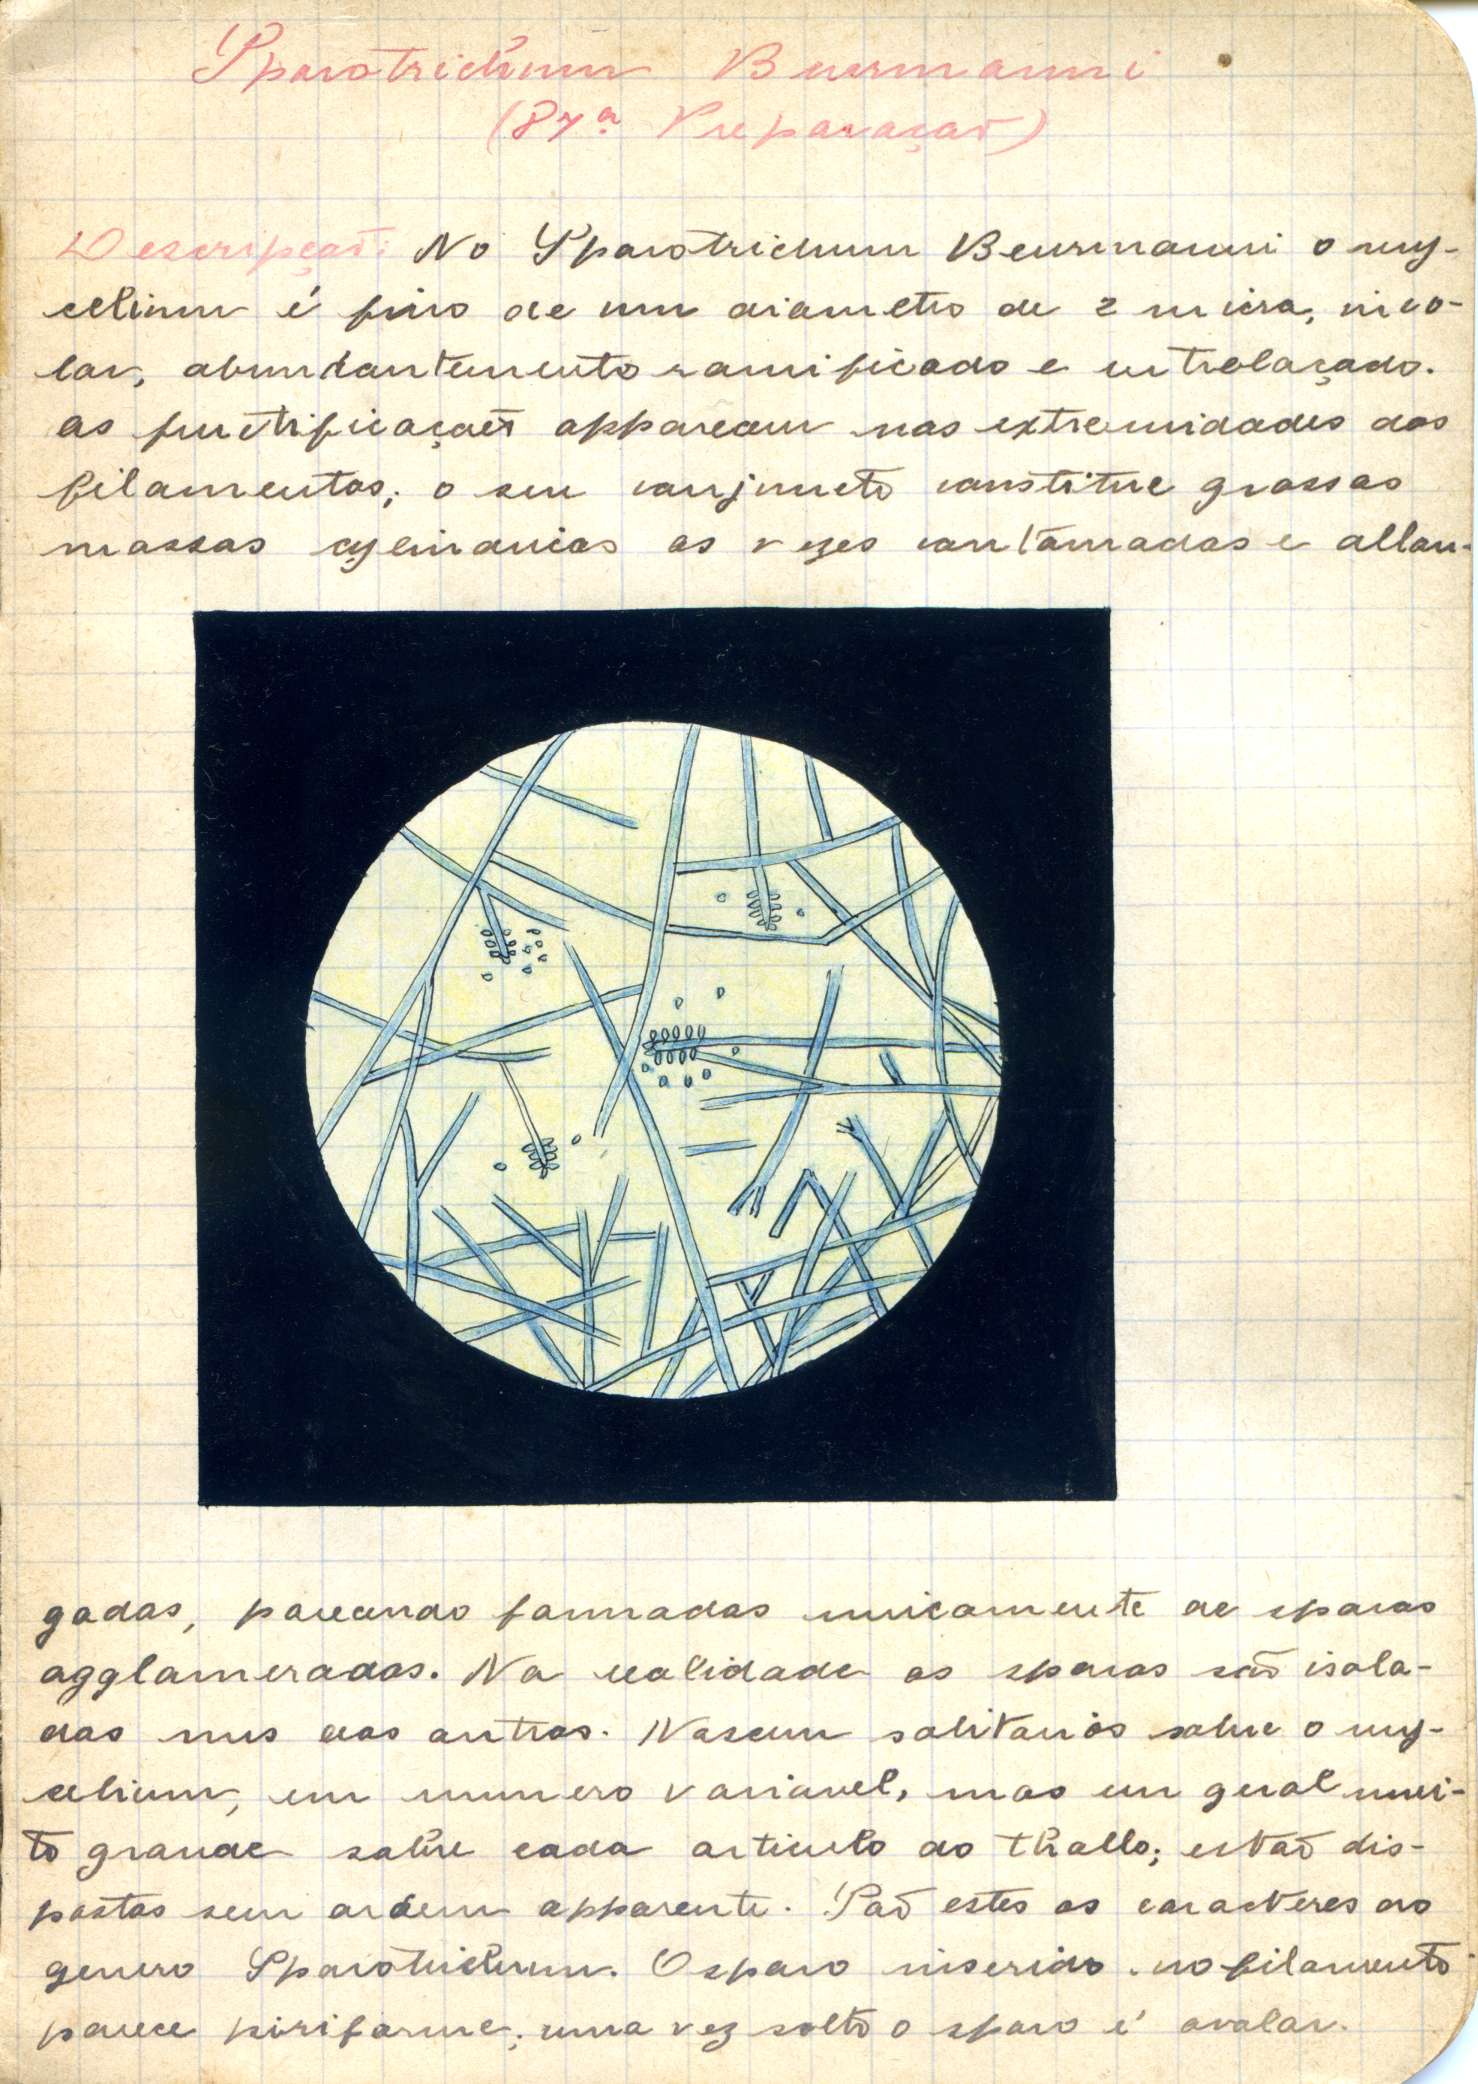 Sporotrichum Beurmanni
(87ª Preparação)
Descripção: No Sporotrichum Beurmanni o my-
celium é fino de um diametro de 2 micra, inco-
lor, abundantemente ramificado e entrelaçado.
as fructificações apparecem nas extremidades dos
filamentos; o seu conjuncto constitue grossas
massas cylindricas as vezes contornadas e allon-
gadas, parecendo formadas unicamente de sporos
agglomerados. Na realidade os sporos são isola-
dos uns dos outros. Nascem solitarios sobre o my-
celium, em numero variavel, mas em geral mui-
to grande sobre cada articulo do thallo; estão dis-
postos sem ordem apparente. São estes os caracteres do
genero Sporotrichum. O sporo inserido no filamento
parece piriforme; uma vez solto o sporo é ovolar.